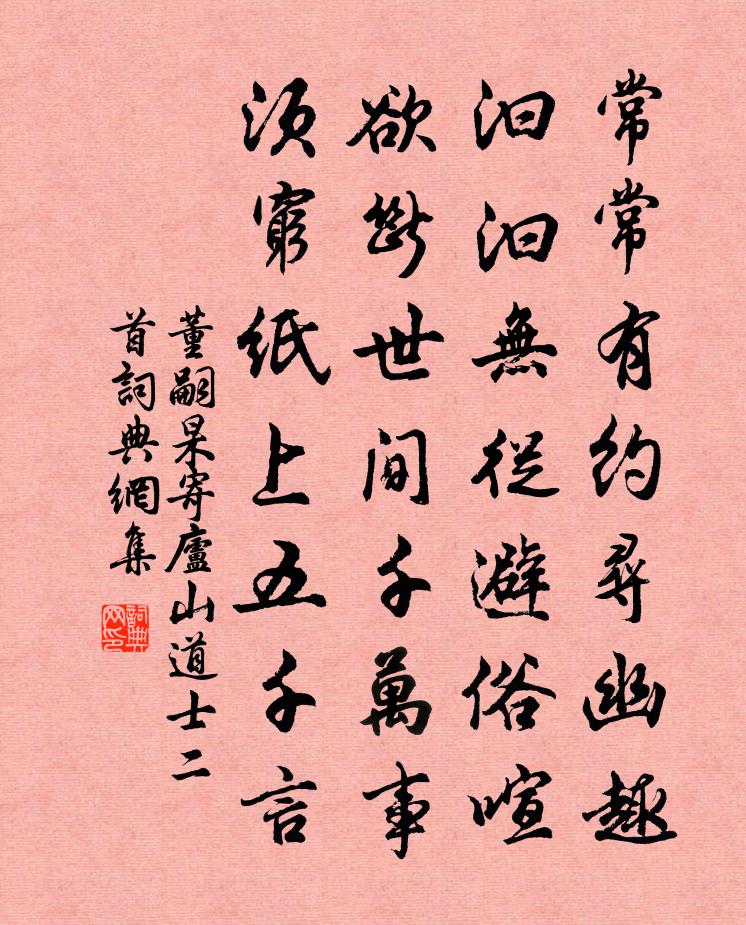 常常有約尋幽趣
汩汩無從避俗喧
欲斷世間千萬事
須窮紙上五千言
董嗣杲寄廬山道士二
首詞典網集
詞典網印